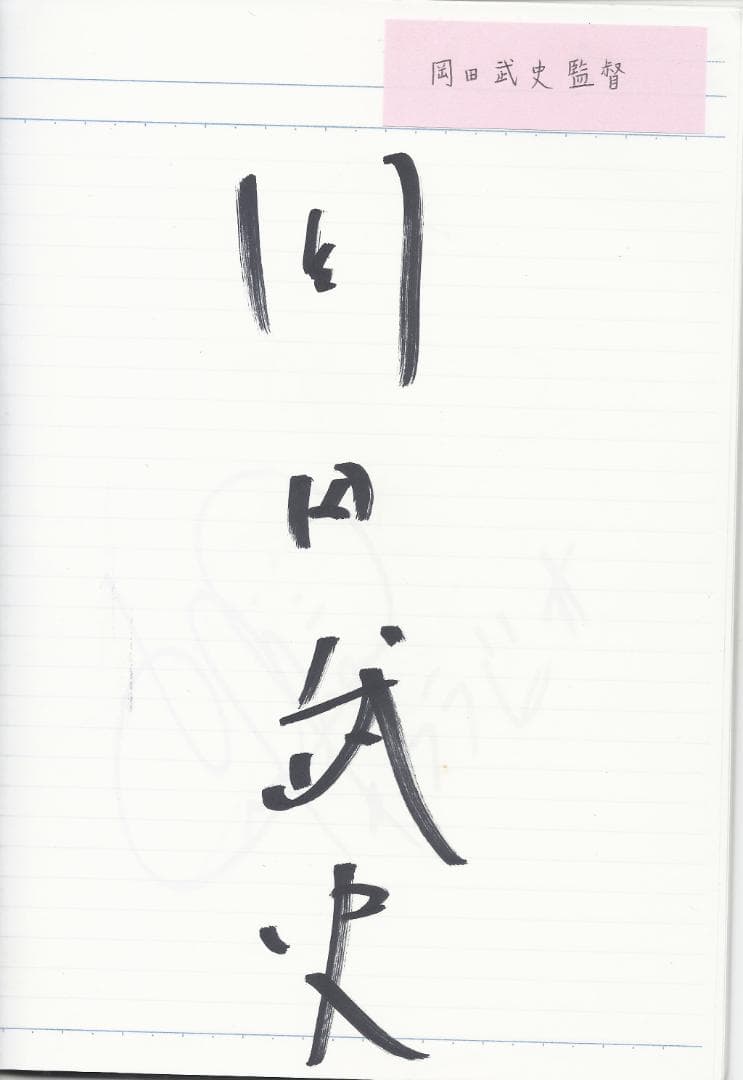 岡田武史監督
岡田武史